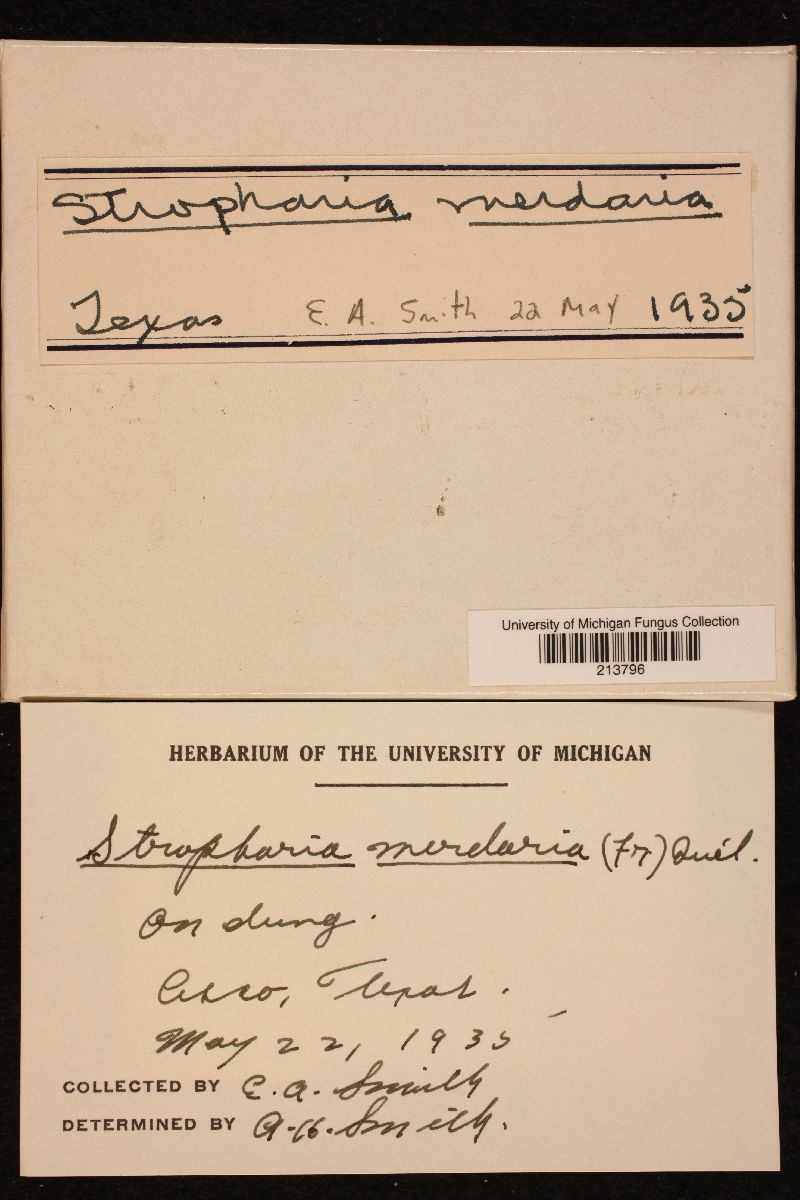 Stropharia merdaria
Texas E. A. Smith 22 May 1935
University of Michigan Fungus Collection
213796
HERBARIUM OF THE UNIVERSITY OF MICHIGAN
Stropharia merdaria (Fr) Quél.
On dung.
Cisco, Texas.
May 22, 1935
COLLECTED BY E.A. Smith
DETERMINED BY A.H. Smith.